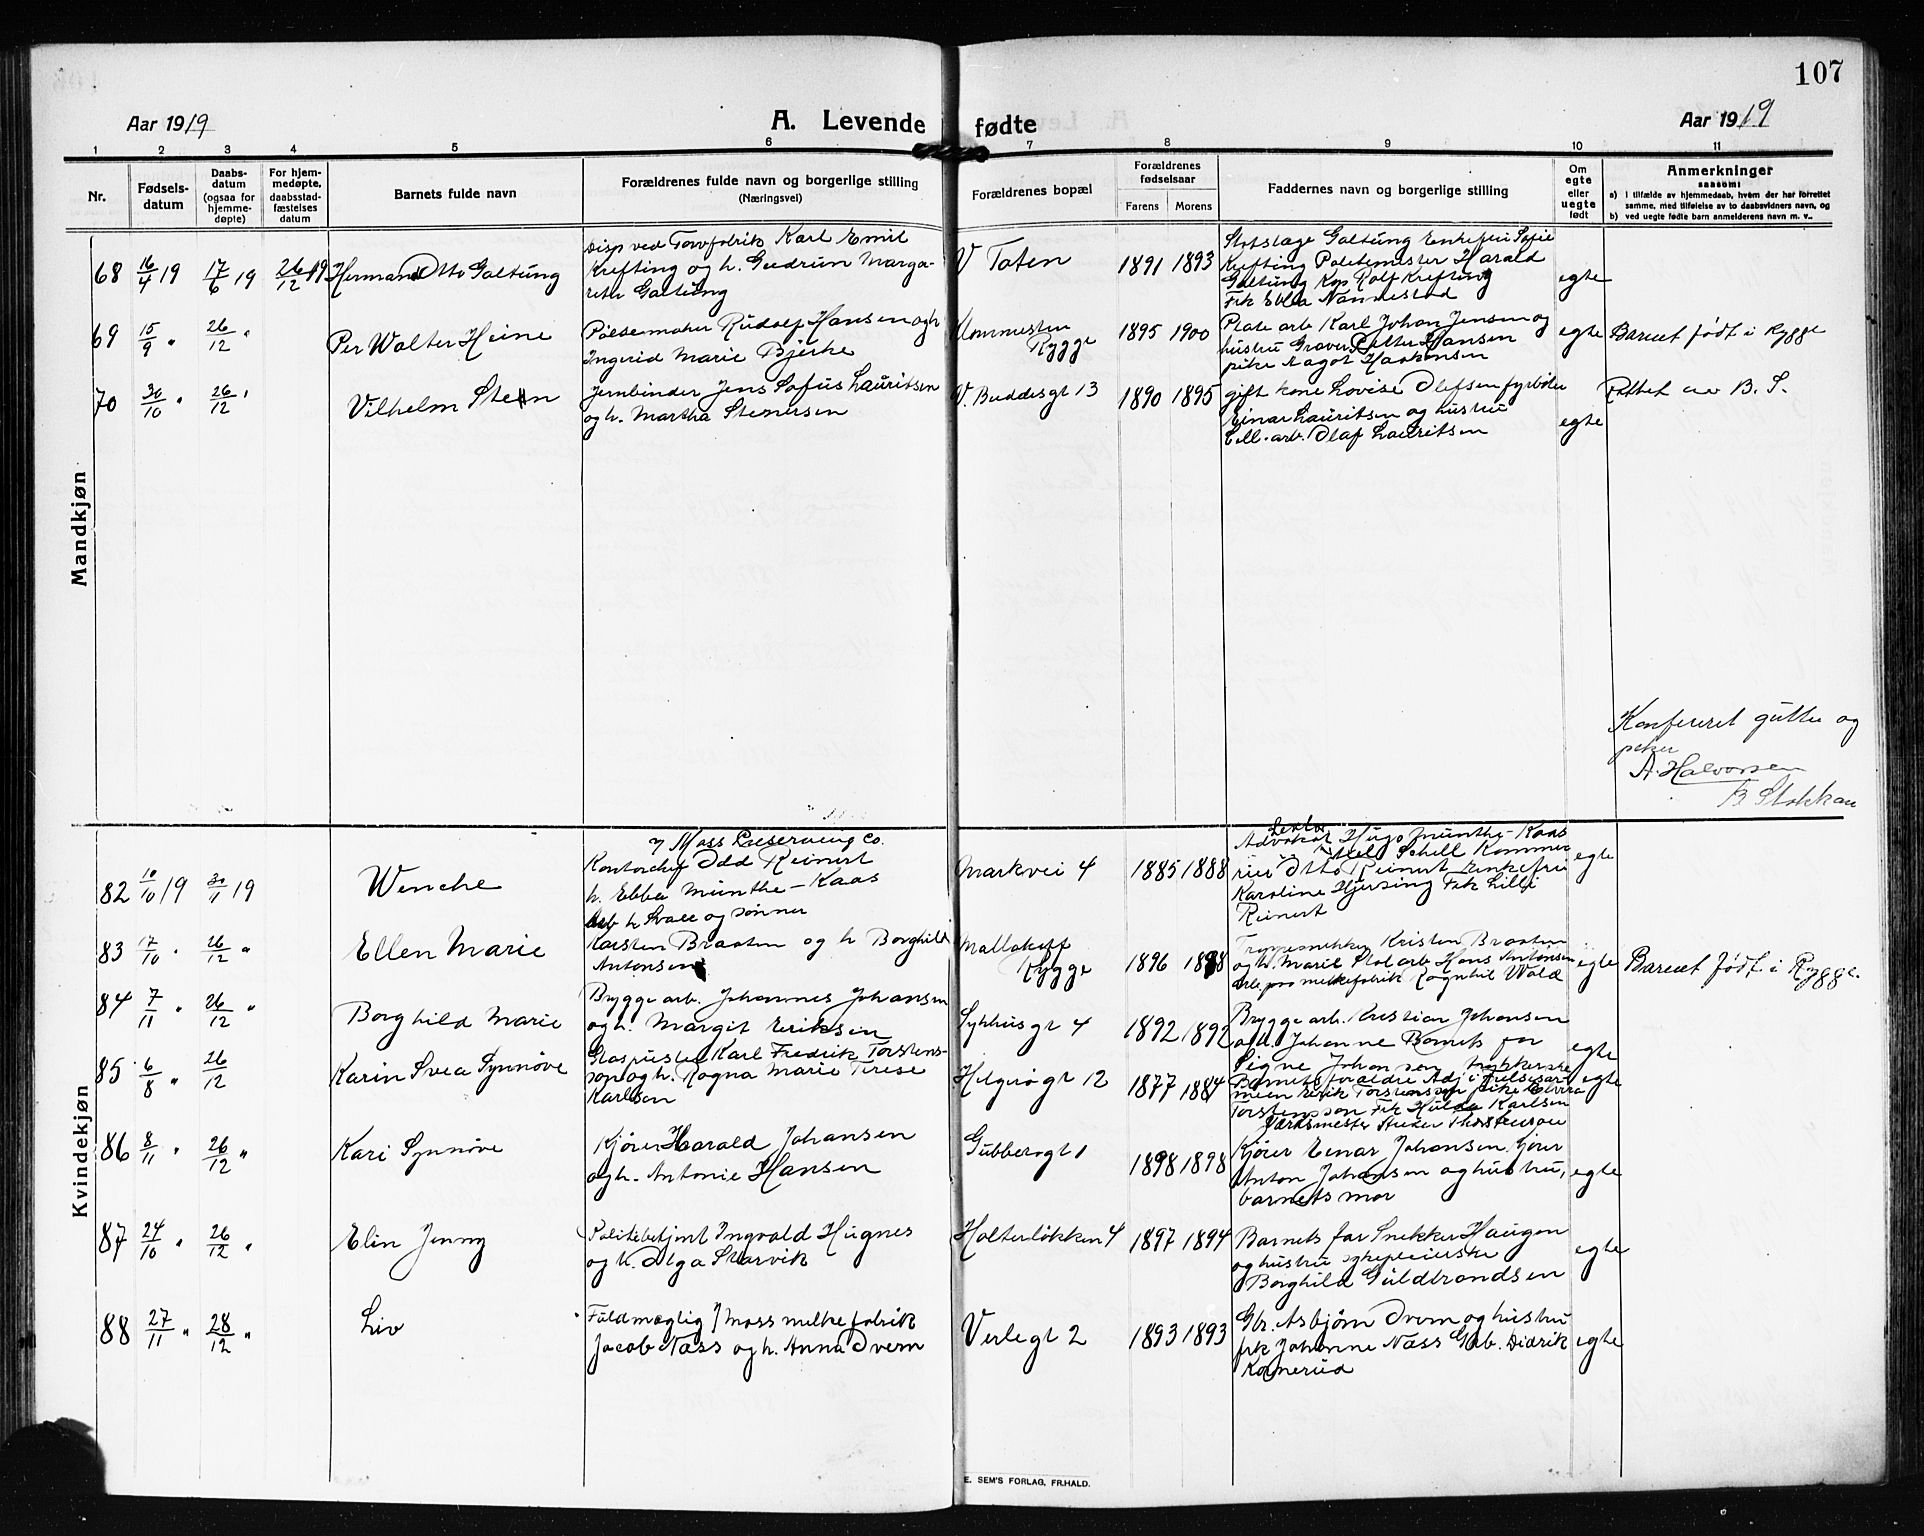 107
Aar 1919
A. Levende fødte
Aar 1919
1 2 3 4 5 6 7 8 9 10 11
Nr.
Fødsels-
datum
Daabs-
datum
(ogsaa for
hjemme-
døpte)
For hjem-
medøpte,
daabsstad-
fæstelses
datum
Barnets fulde navn
Forældrenes fulde navn og borgerlige stilling
(Næringsvei)
Forældrenes bopæl
Forældrenes
fødselsaar
Farens Morens
Faddernes navn og borgerlige stilling
Om
egte
eller
uegte
født
Anmerkninger
saasom:
a) i tilfælde av hjemmedaab, hvem der har forrettet
samme, med tilføielse av to daabsvidners navn, og
b) ved uegte fødte barn anmelderens navn m. v..
Mandkjøn
68 16/4 19 17/6 19 26/12 19 Herman Otto Galtung
Disp ved Torvfabrik Karl Emil
Krefting og h. Gudrun Marga-
rethe Galtung
V Toten 1891 1893
Slotslæge Galtung Enkefru Sofie
Krefting Politimester Harald
Galtung Kap Rolf Krefting
Frk Ebba Nannestad
egte
69 15/9 " 26/12 " Per Walter Heine
Pølsemaker Rudolf Hansen og h
Ingerid Marie Bjerke
Rygge 1895 1900
Plate arb Karl Johan Jensen og
hustru Graver Petter Hansen
pike Aagot Haakonsen
egte Barnet født i Rygge
70 30/10 " 26/12 " Vilhelm Sten
Jernbinder Jens Sofus Lauritsen
og h. Martha Stenersen
V. Buddesgt 13 1890 1895
gift kone Lovise Olefsen fyrbøter
Einar Lauritsen og hustru
Cell. arb. Olaf Lauritsen
egte Rettet av B. S.
Konfereret gutter og
piker
A. Halvorsen
B Stokkan
Kvindekjøn
82 10/10 19 30/11 19 Wenche
v/ Moss Preserving Co.
Kontorchef Odd Reinert
h. Ebba Munthe-Kaas
Markvei 4 1885 1888
Advokat Hugo Munthe-Kaas
Schell Kommer
Otto Reinert Enkefru
Karoline Hjersing Frk Lilli
Reinert
egte
83 17/10 " 26/12 " Ellen Marie
Arb h Svae og sønner
Karsten Braaten og h Borghild
Antonsen
Rygge 1896 1898
Kristen Braaten
og h. Marie Stol arb Hans Antonsen
arb. paa melkefabrik Ragnhil Wold
egte Barnet født i Rygge.
84 7/11 " 26/12 " Borghild Marie
Brygge arb. Johannes Johansen
og h. Margit Eriksen
Sykhusgt 4 1892 1892
Brygge arb. Kristian Johansen
og h. Johanne Barnets far
Signe Johansen
egte
85 6/8 " 26/12 Karin Svea Synnøve
Glaspuster Karl Fredrik Torstens-
son og h. Ragna Marie Terese
Karlsen
Helgerøgt 12 1877 1884
Barnets forældre Adj i frelsesar
meen Erik Torstensson pike Elvira
Torstensson Frk Hulda Karlsen
egte
86 8/11 " 26/12 " Kari Synnøve
Kjører Harald Johansen
og h. Antonie Hansen
Gubberogt 1 1898 1898
Kjører Einar Johansen kjører
Anton Johansen og hustru,
barnets mor
egte
87 24/10 " 26/12 " Elin Jenny
Politibetjent Ingvald Hugnes
og h. Olga Starvik
Holterløkken 4 1897 1894
Barnets far Snekker Haugen
og hustru sykepleierske
Borghild Guldbrandsen
egte
88 27/11 " 28/12 " Liv
Fuldmægtig v/ Moss melkefabrik
Jacob Næss og h. Anna Dvern
Verlegt 2 1893 1893
Gbr. Asbjørn Dvern og hustru
frk Johanne Næss Gbr. Didrik
Kornerud
egte
E. SEM'S FORLAG, FR.HALD.